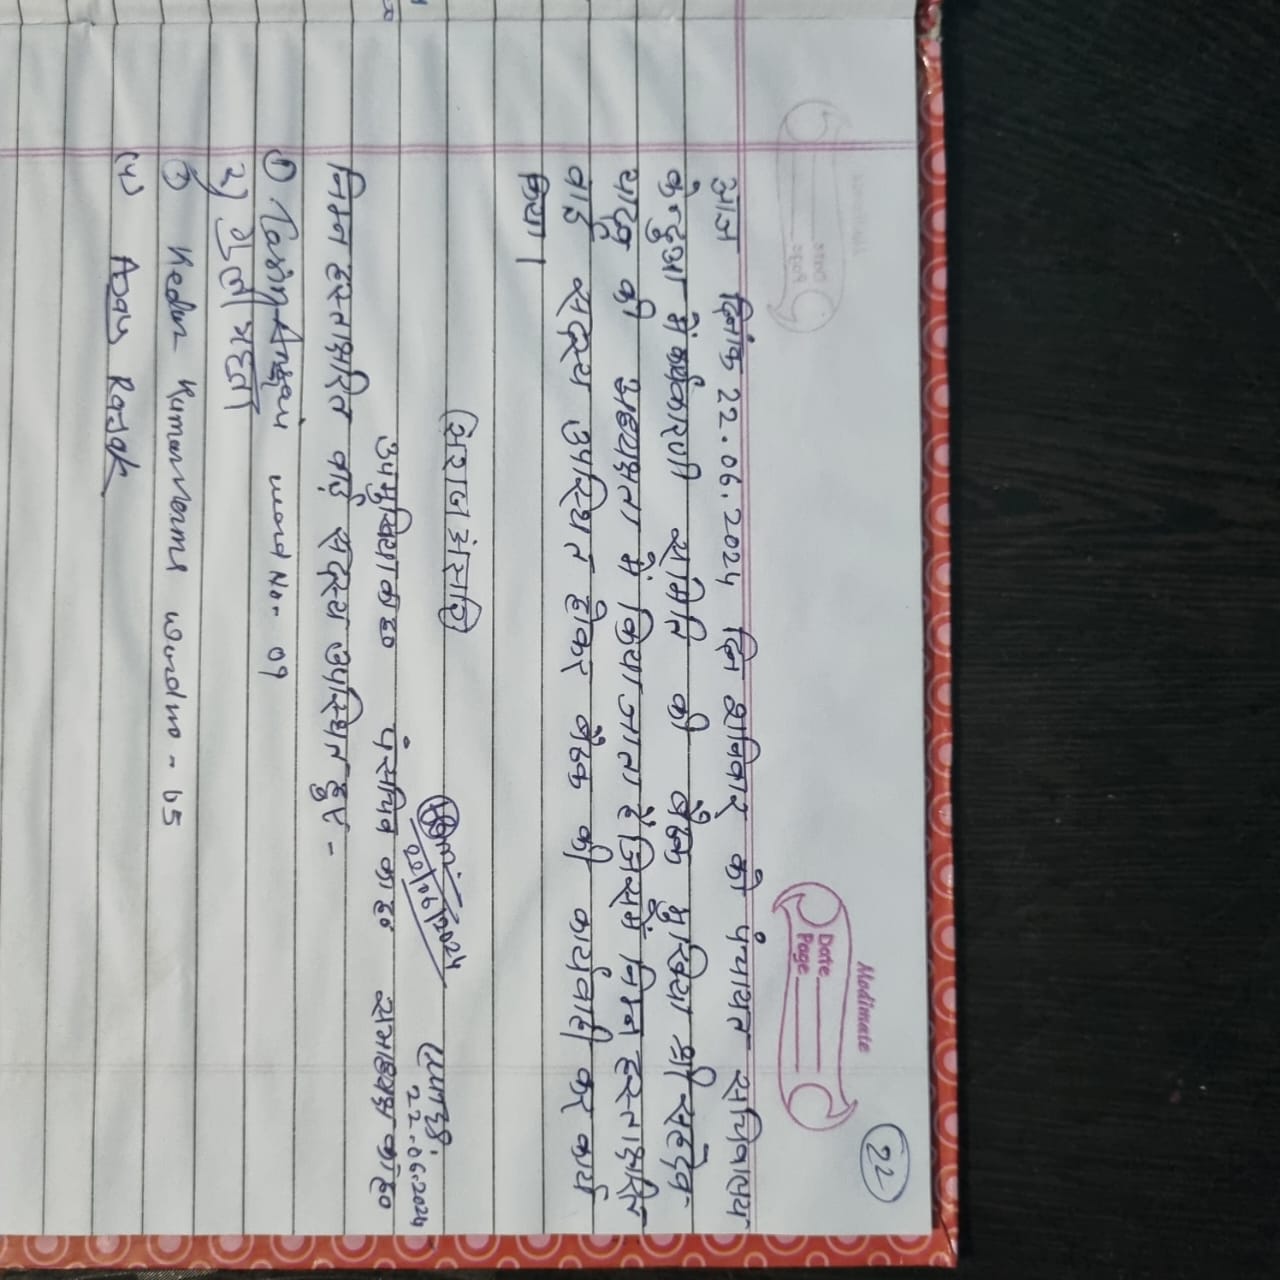 22
Madimate
Date
Page
आज दिनांक 22.06.2024 दिन शनिवार को पंचायत सचिवालय
केन्दुआ में कार्यकारणी समिति की बैठक मुखिया श्री सहदेव
यादव की अध्यक्षता में किया जाता है जिसमें निम्न हस्ताक्षरित
वार्ड सदस्य उपस्थित होकर बैठक की कार्यवाही कर कार्य
किया।
22/06/2024
22.06.2024
उपमुखिया के ह० पं० सचिव का ह० सभाध्यक्ष का ह०
निम्न हस्ताक्षरित वार्ड सदस्य उपस्थित हुए -
① Ansari word No- 09
2)
③ Kedar Kumar Verma word no - 05
(4) Ajay Rajak